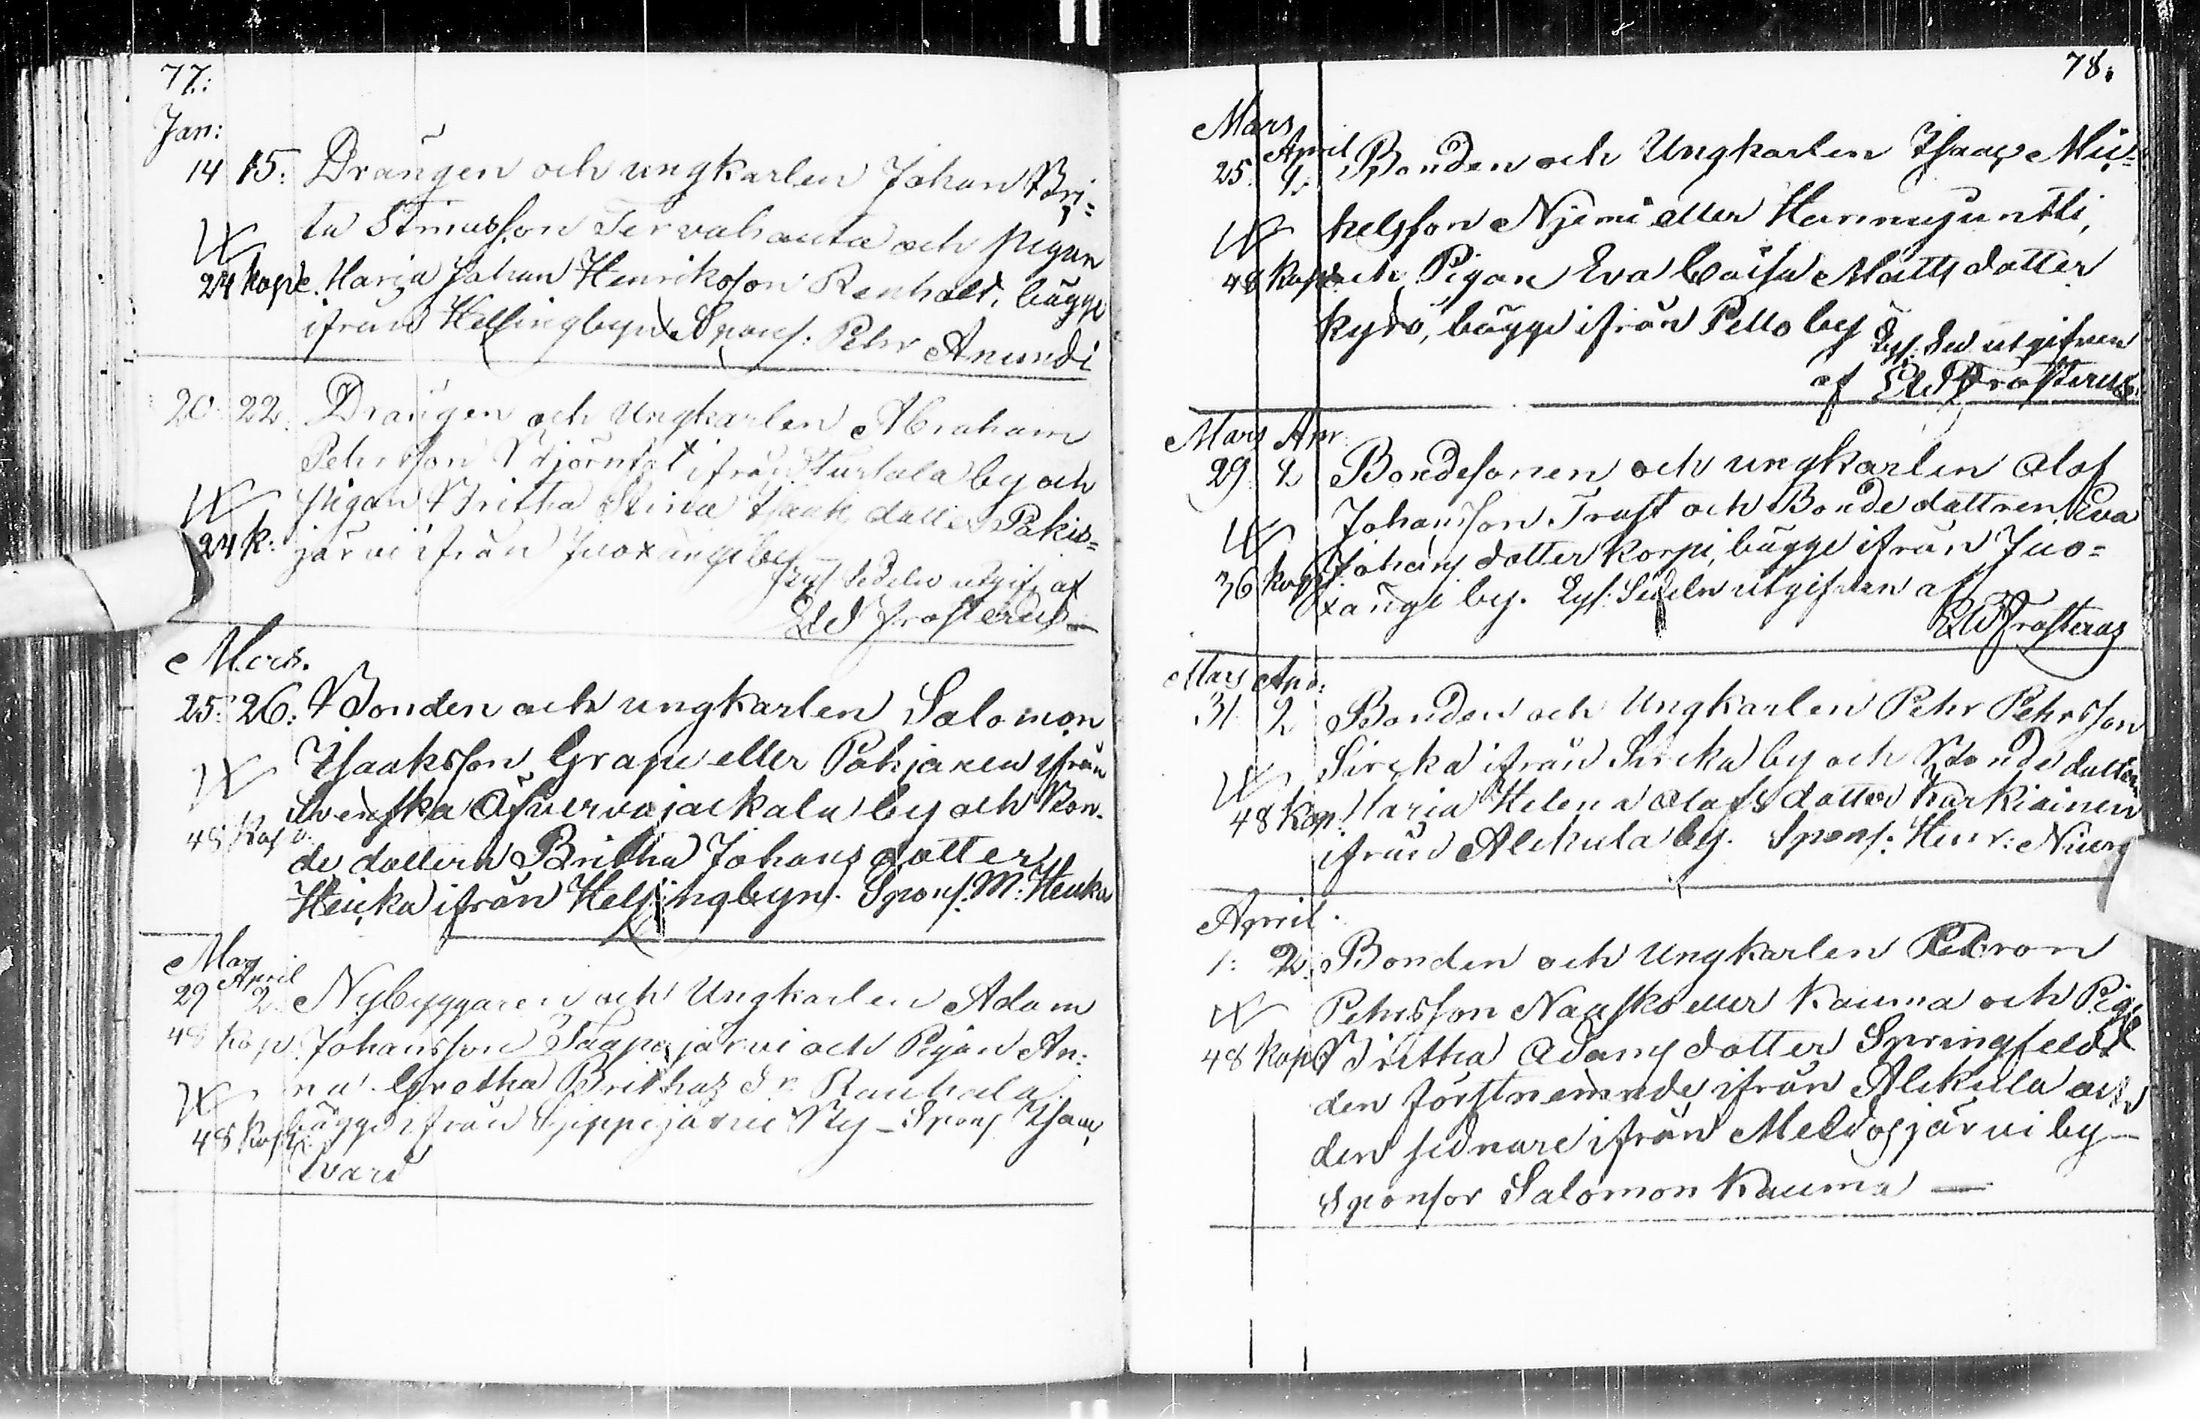 77.
Jan:
14 15. Drängen och ungkarlen Johan Bri=
ta Stinasson Tervahauta och pigan
24 kope. Maria Johan Henriksson Renhold, bägge
ifrån Hellingbyn Spons: Pehr Anundi
20 22. Drängen och Ungkarlen Abraham
Pehrsson Stjörnfat ifrån Turtola by och
pigan Britha Stina Isaaks dotter Pakis=
24 k: järvi ifrån Juoxangi by
Lysf Sedeln utgifv af
Frosterus
Mars.
25. 26. Bonden och ungkarlen Salomon
Isaaksson Grape eller Pohjanen ifrån
Svenska Öfvervojackala by och Bon-
48 Kop
de dottern Britha Johans dotter
Heicka ifrån Helsingbyn. Spons: M: Heicka
Mars April
29 2 Nybyggaren och Ungkarlen Adam
48 Kop Johansson Taapajärvi och Pigan An:
na Gretha Brithas dr Rauhala
bägge ifrån Sjeppijärvi By – Spons Isaac
48 Kop
Ivari
78.
Mars April
25. 2. Bonden och Ungkarlen Isaac Mic=
kelsson Njemi eller Hannujuntti,
48 Kop och Pigan Eva Caisa Matts dotter
Kyrö, bägge ifrån Pello by
Lys: Sed utgifven
af Frosterus
Mars Apr
29. 2 Bondesonen och ungkarlen Olof
Johansson Trast och Bonde dottren Eva
Johans dotter Korpi, bägge ifrån Juo=
36 kop xangi by. Lys: Sedeln utgifven af
Frosterus
Mars Apr:
31 2 Bonden och Ungkarlen Pehr Pehrsson
Sircka ifrån Sircka by och Bonde dottern
48 Kop: Maria Helena Olofs dotter Karkiainen
ifrån Alckula by. Spons: Henr:
April
1: 2. Bonden och Ungkarlen Petron
Pehrsson Naasko eller Kauma och Pig
48 kop Britha Adams dotter Springfeldt
den förstnemnde ifrån Alckula och
den sednare ifrån Meldosjärvi by –
Sponsor Salomon Kauma —